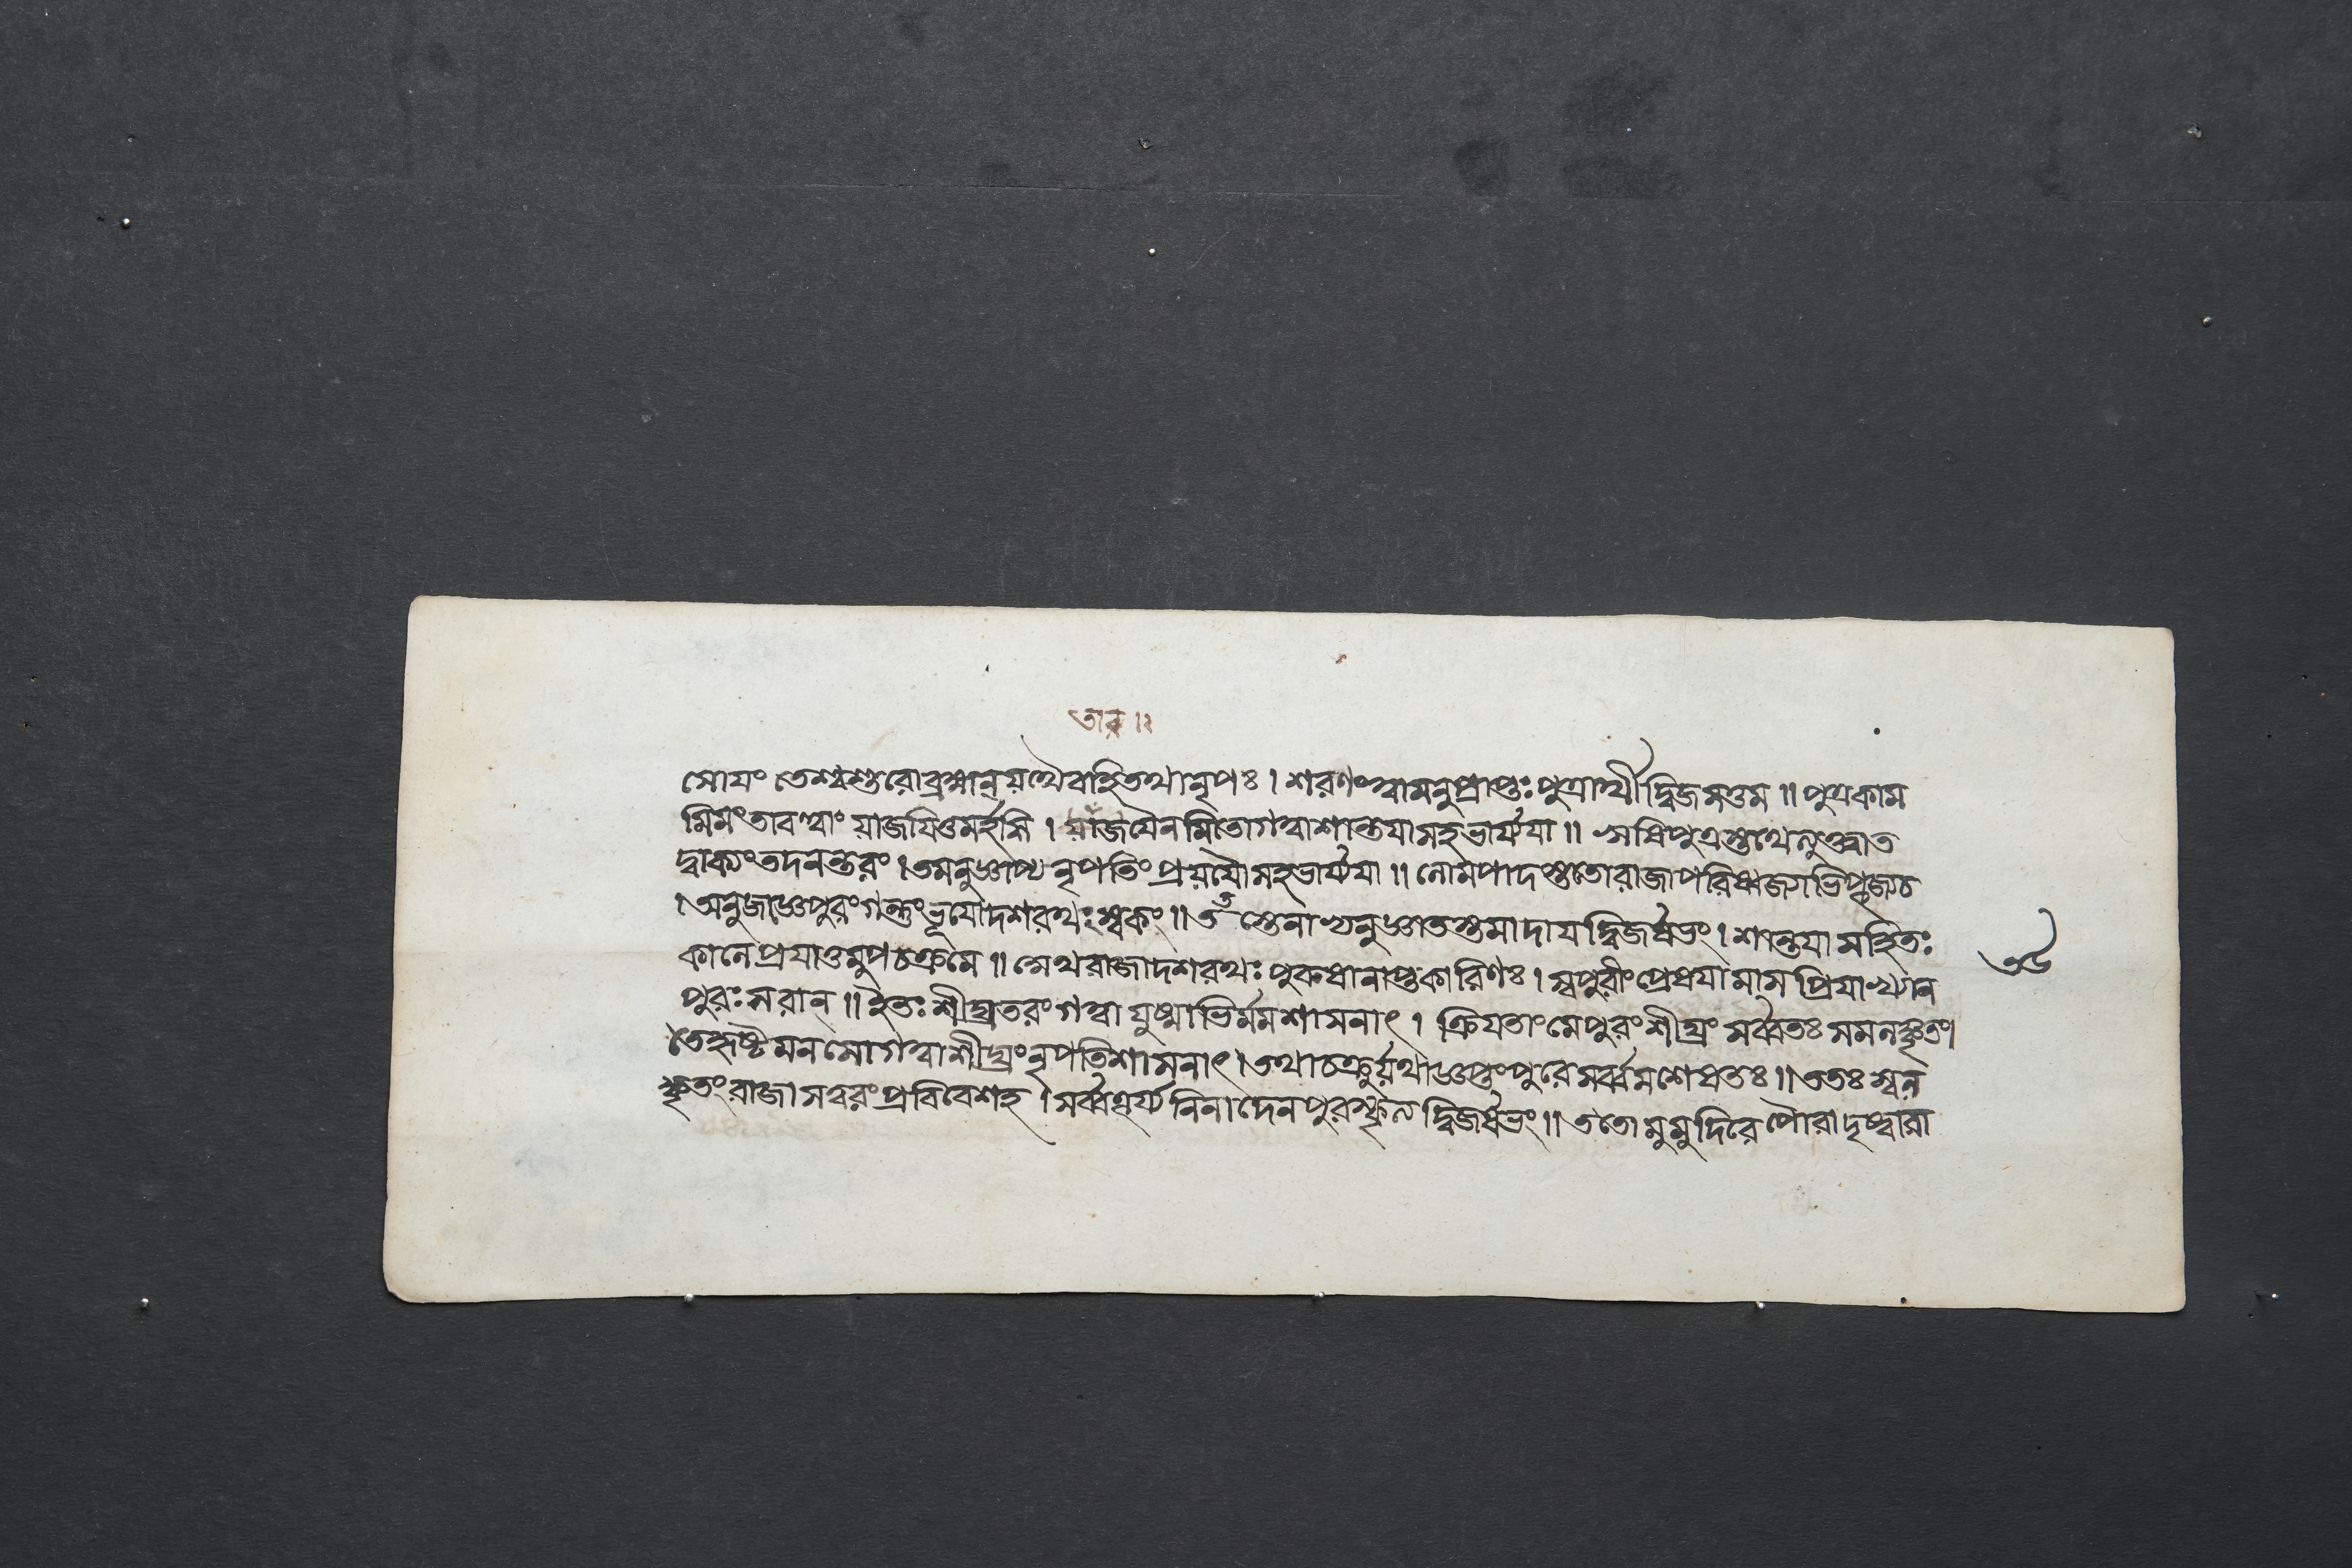 তাব ॥২
সোযং তেশ্বশুরোব্রহ্মন্ যথৈবাহিতথানৃপঃ । শরণংত্বামনুপ্রাপ্তঃপুত্রার্থীদ্বিজসত্তম ॥ পুত্রকাম
মিমংতাবত্ত্বাং যাজযিতুমর্হসি । যাজযৈনমিতোগত্বাশান্তযাসহভার্য্যযা ॥ ঋষিপুত্রস্তথেত্যুক্ত্বাত
দ্বাক্যংতদনন্তরং । তমনুজ্ঞাপ্য নৃপতিং প্রযযৌসহভার্য্যযা ॥ লোমপাদস্ততোরাজাপরিষ্বজ্যাভিপূজ্যচ
। অনুজজ্ঞেপুরংগন্তুংভূযোদশরথংস্বকং ॥ তস্তেনাভ্যনুজ্ঞাতস্তমাদায দ্বিজর্ষভং । শান্তযা সহিতং
কালে প্রযাতুমুপচক্রমে ॥ সোথরাজাদশরথঃ পুরুষানাপ্তকারিণঃ । স্বপুরীংপ্রেষযামাস প্রিযাখ্যান
পুরঃসরান্ ॥ ইতঃ শীঘ্রতরং গত্বা যুষ্মাভির্মমশাসনাৎ । ক্রিযতাংমেপুরংশীঘ্রং সর্ব্বতঃ সমলঙ্কৃতং।
তেহৃষ্টমনসোগত্বাশীঘ্রংনৃপতিশাসনাৎ । তথাচক্রুর্যথাজ্ঞপ্তংপুরেসর্ব্বমশেষতঃ ॥ ততঃ স্বল
ঙ্কৃতং রাজা সত্বরং প্রবিবেশহ । সর্ব্বতূর্য্য নিনাদেন পুরস্কৃত্য দ্বিজর্ষভং ॥ ততো মুমুদিরে পৌরা দৃষ্ট্বারা
৩৬